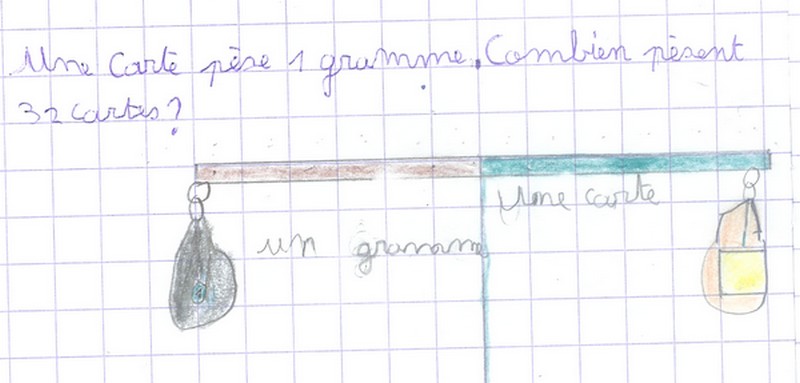 Une Carte pèse 1 gramme. Combien pèsent
32 cartes?
Une carte
un gramme